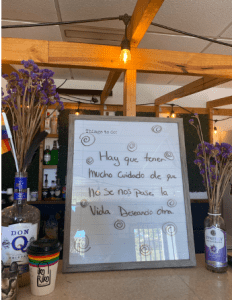 Things to do:
Hay que tener
Mucho Cuidado de que
No se nos pase la
Vida Deseando otra
DON
Q